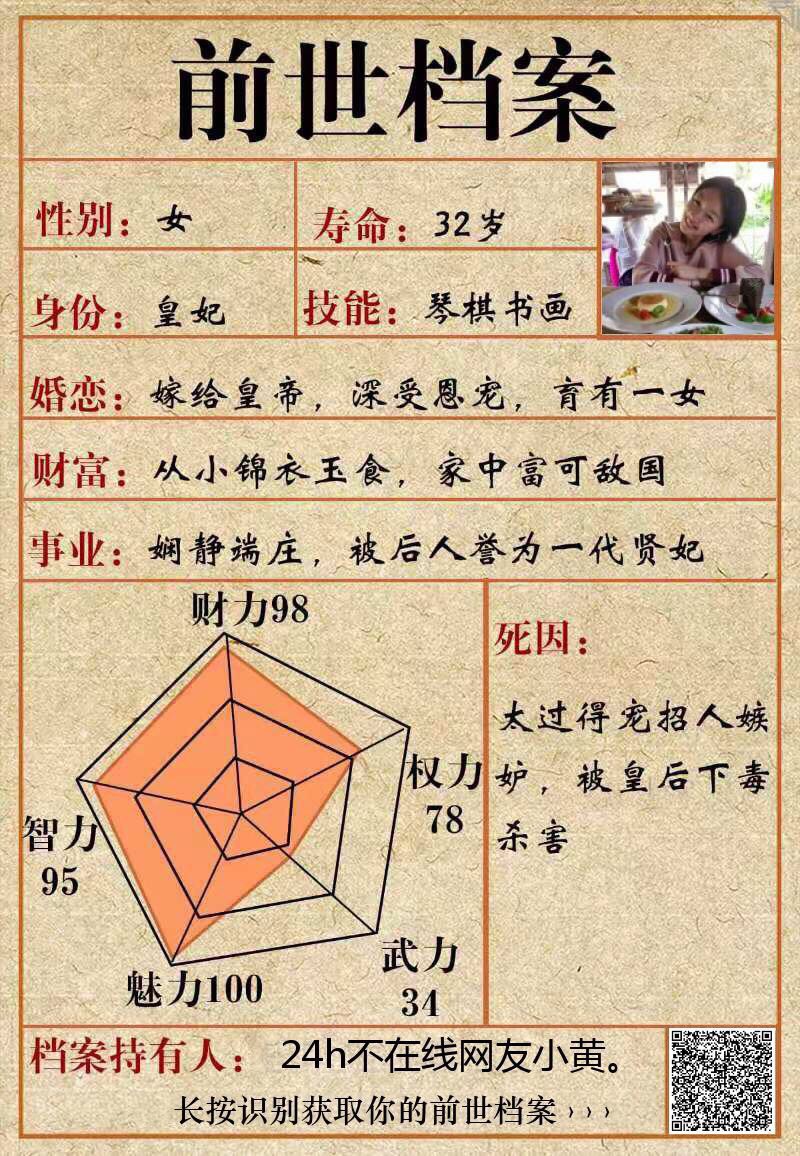 前世档案
性别：女
寿命：32岁
身份：皇妃
技能：琴棋书画
婚恋：嫁给皇帝，深受恩宠，育有一女
财富：从小锦衣玉食，家中富可敌国
事业：娴静端庄，被后人誉为一代贤妃
财力98
权力
78
智力
95
武力
34
魅力100
死因：
太过得宠招人嫉
妒，被皇后下毒
杀害
档案持有人：24h不在线网友小黄。
长按识别获取你的前世档案 › › ›